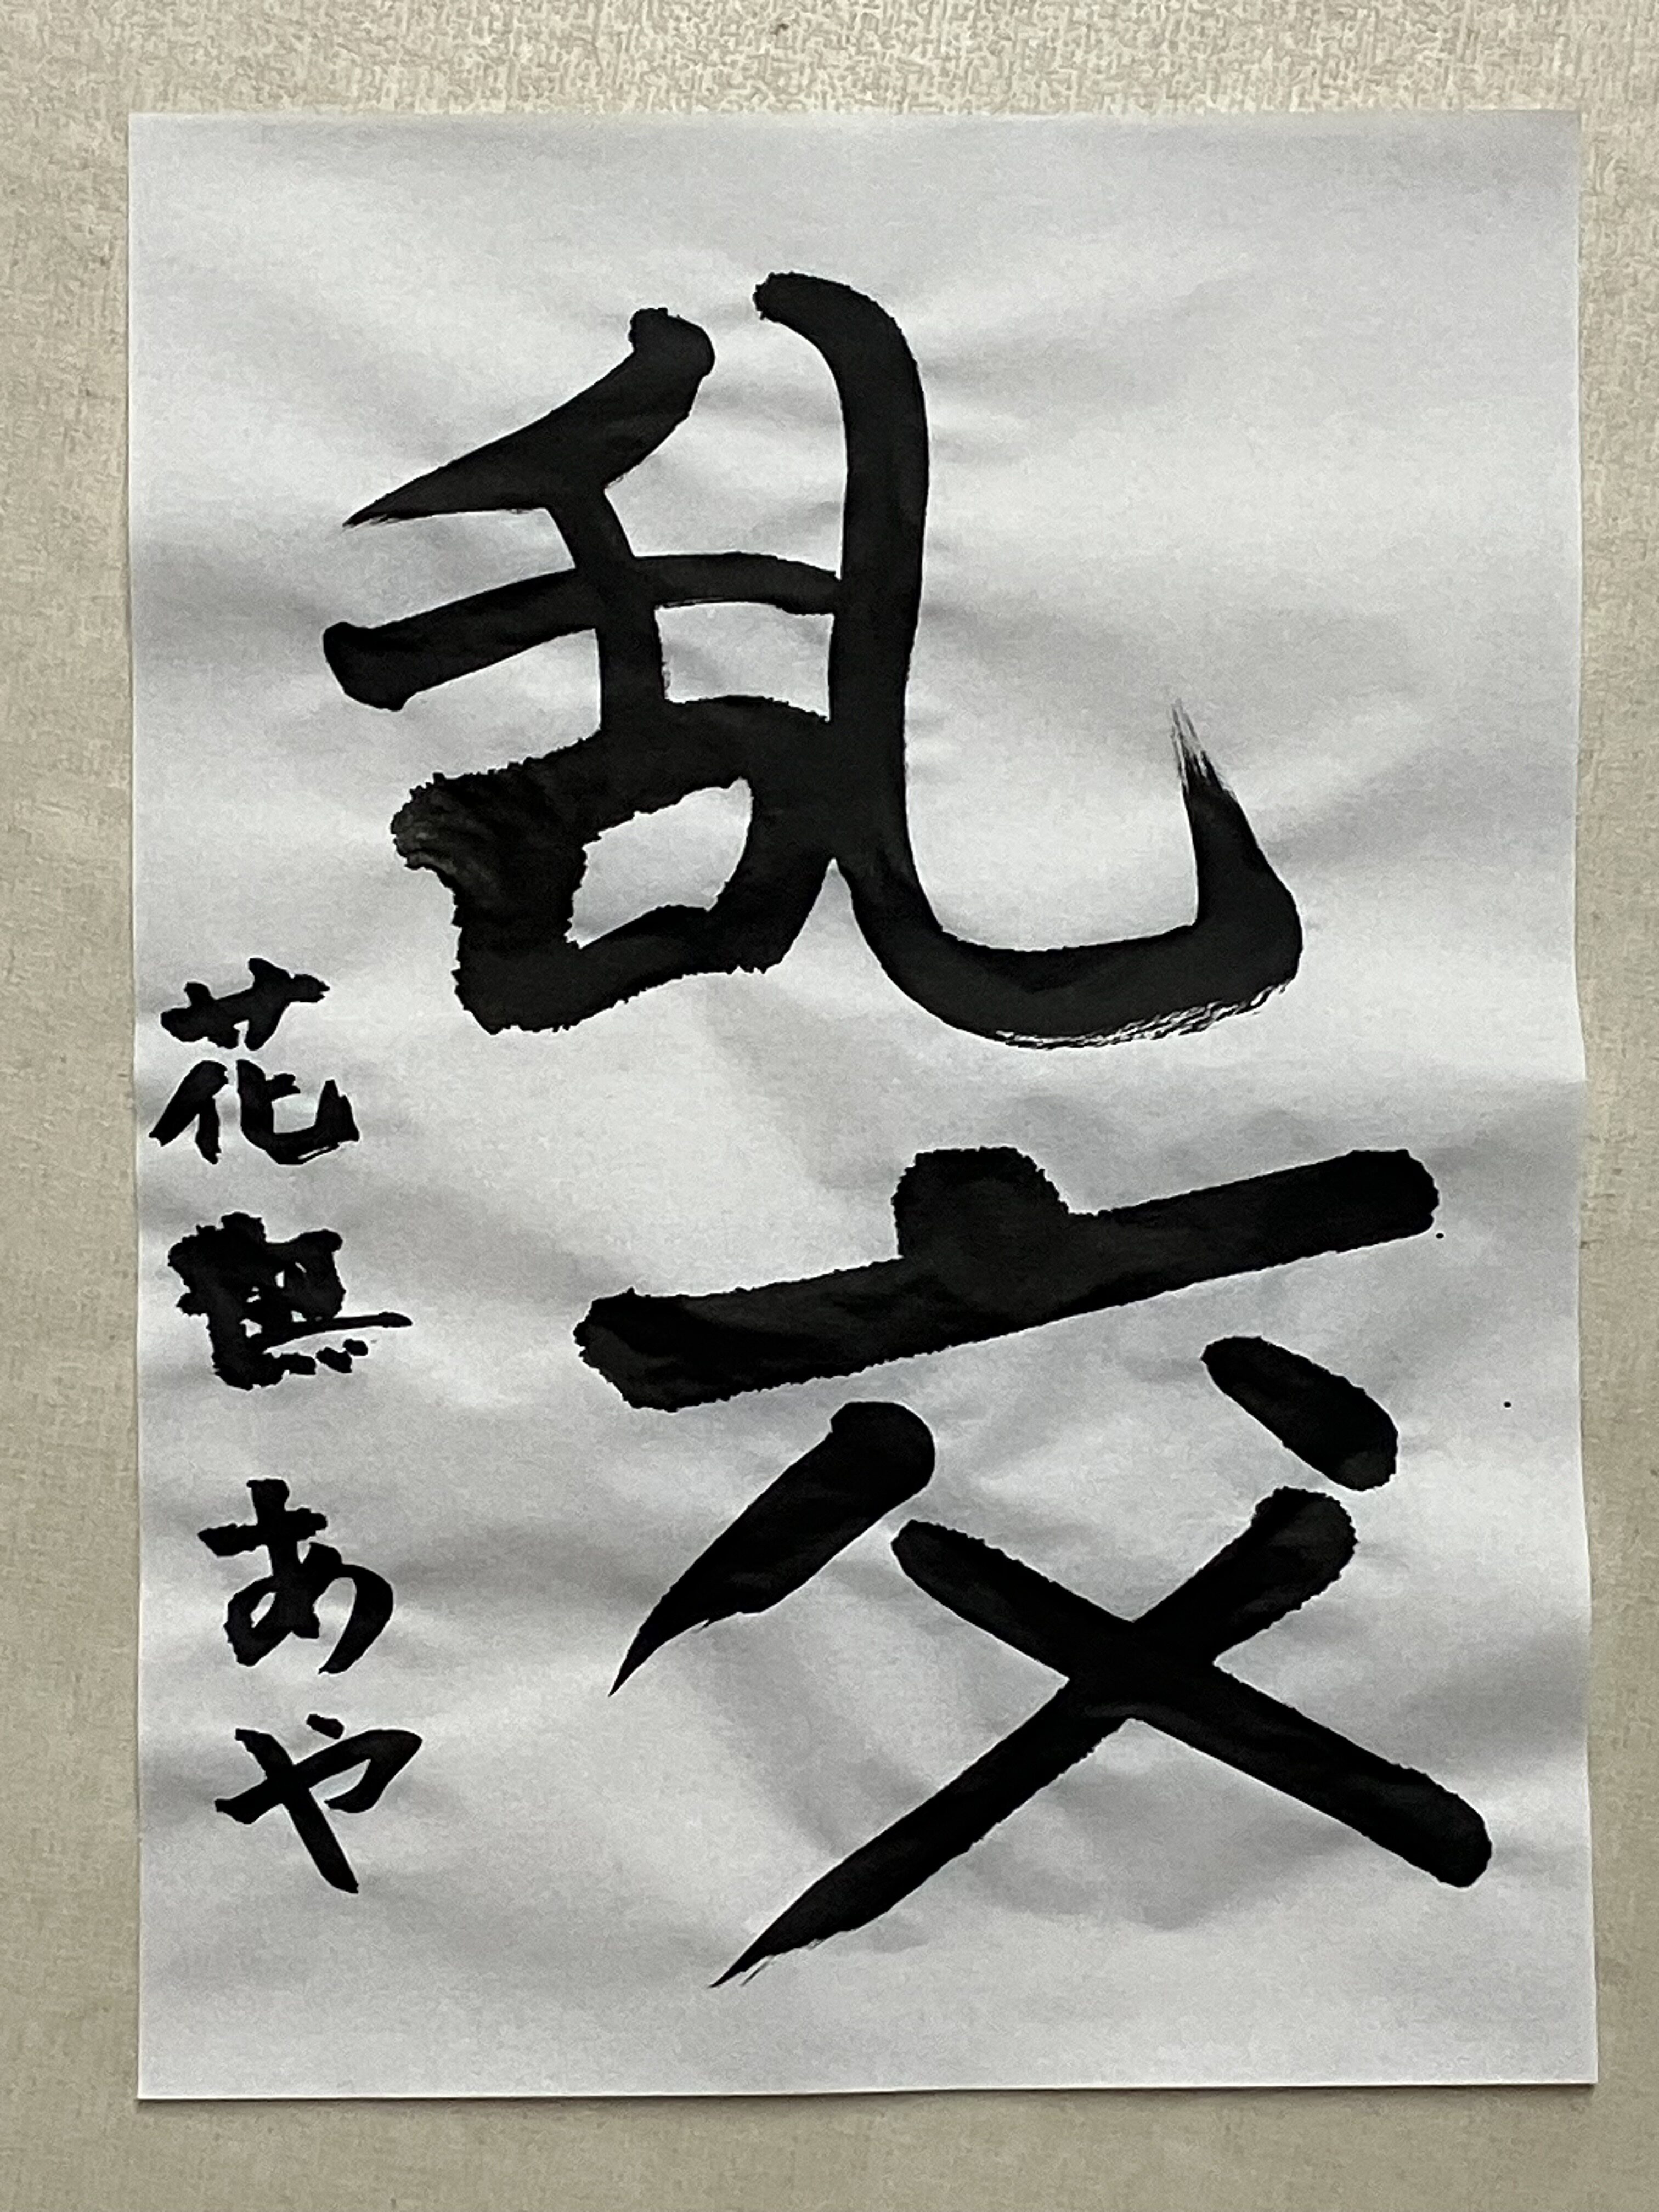 乱交
花無あや